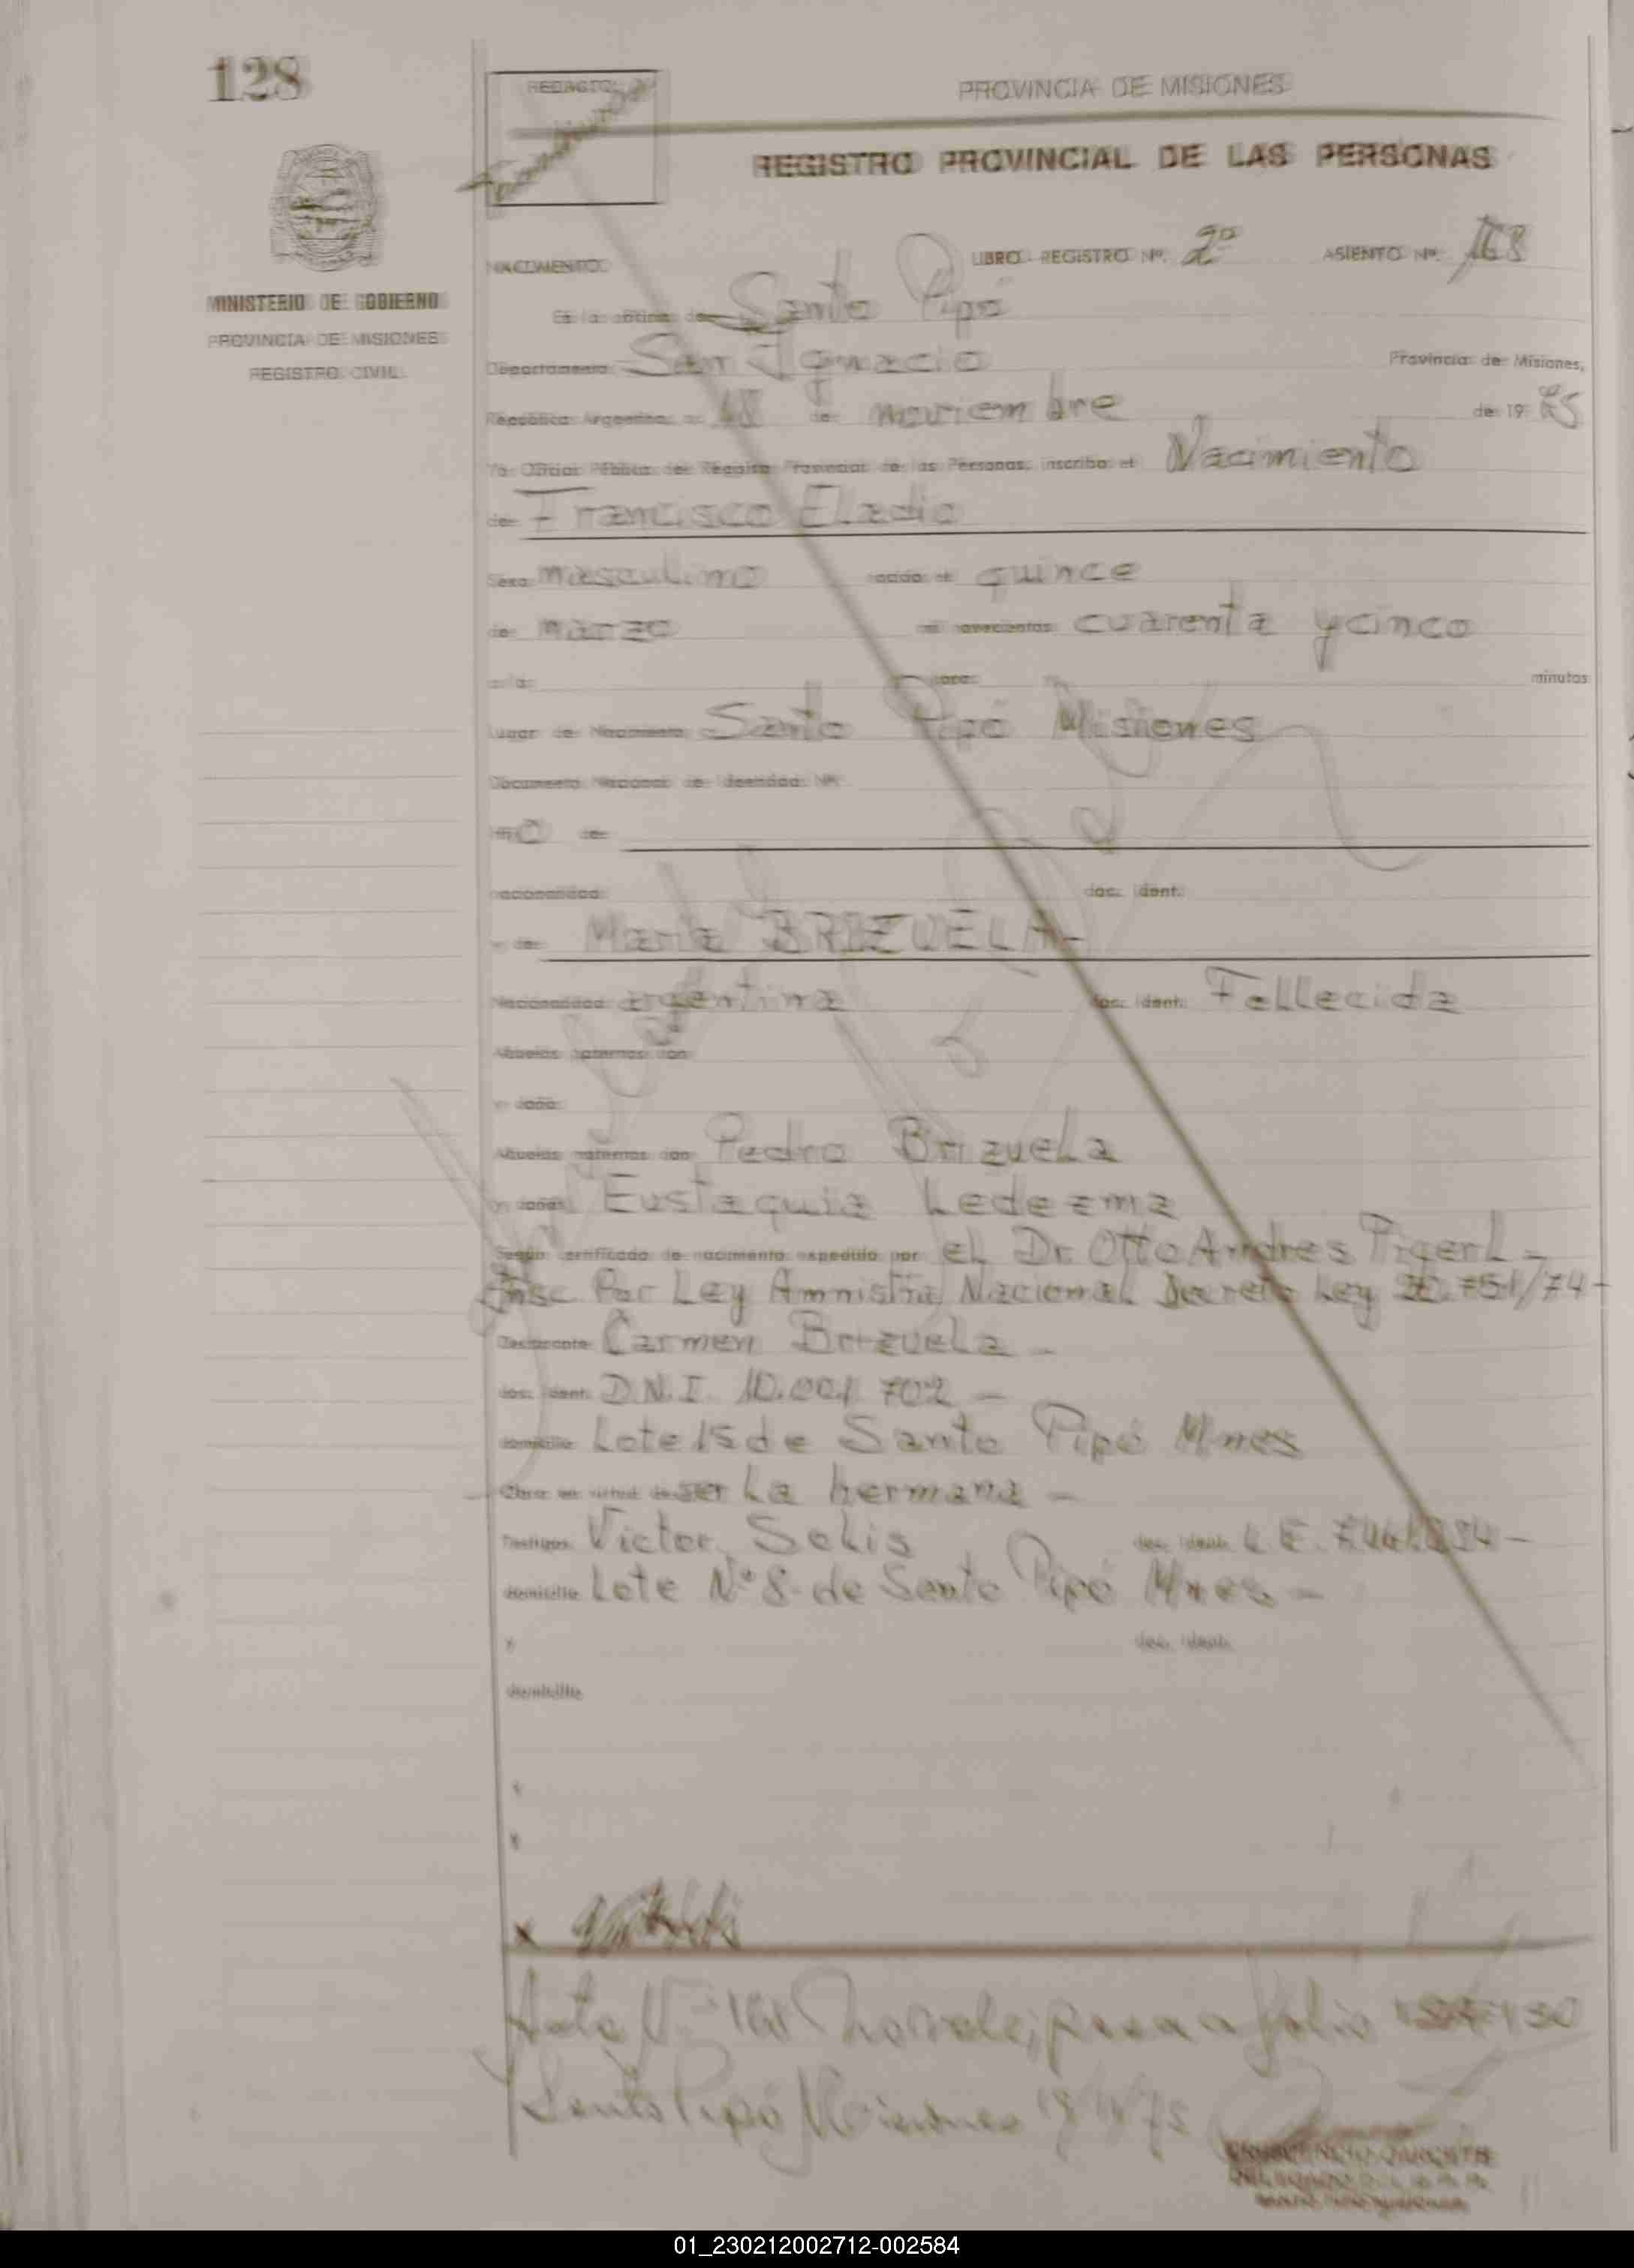 128
REDACTO:
PROVINCIA DE MISIONES
REGISTRO PROVINCIAL DE LAS PERSONAS
MINISTERIO DE GOBIERNO
PROVINCIA DE MISIONES
REGISTRO CIVIL
NACIMIENTO: LIBRO REGISTRO Nº. 2º ASIENTO Nº. 168
En la oficina de Santo Pipó
Departamento San Ignacio Provincia de Misiones,
República Argentina, a 18 de noviembre de 19 75
Yo Oficial Público del Registro Provincial de las Personas, inscribo el Nacimiento
de Francisco Eladio
Sexo masculino nacido el quince
de marzo mil novecientos cuarenta y cinco
a las horas minutos
Lugar de Nacimiento Santo Pipó Misiones
Documento Nacional de Identidad Nº.
Hijo de
nacionalidad doc. ident.
y de María BRIZUELA-
Nacionalidad argentina doc. ident. Fallecida
Abuelos paternos don
y doña
Abuelos maternos don Pedro Brizuela
y doña Eustaquia Ledezma
Según certificado de nacimiento expedido por el Dr. Otto Andres
Insc. Por Ley Amnistía Nacional Decreto Ley 20.751/74-
Declarante Carmen Brizuela -
doc. ident. D.N.I. 10.001 702 -
domicilio Lote 15 de Santo Pipó Mnes
Obra en virtud de ser la hermana -
Testigos Victor Solis doc. ident. L.E.
domicilio Lote Nº 8- de Santo Pipó Mnes -
y doc. ident.
domicilio
x
x
x
Acta Nº 168 No vale, pasa a folio 130
Santo Pipó Misiones 19/11/75
01_230212002712-002584